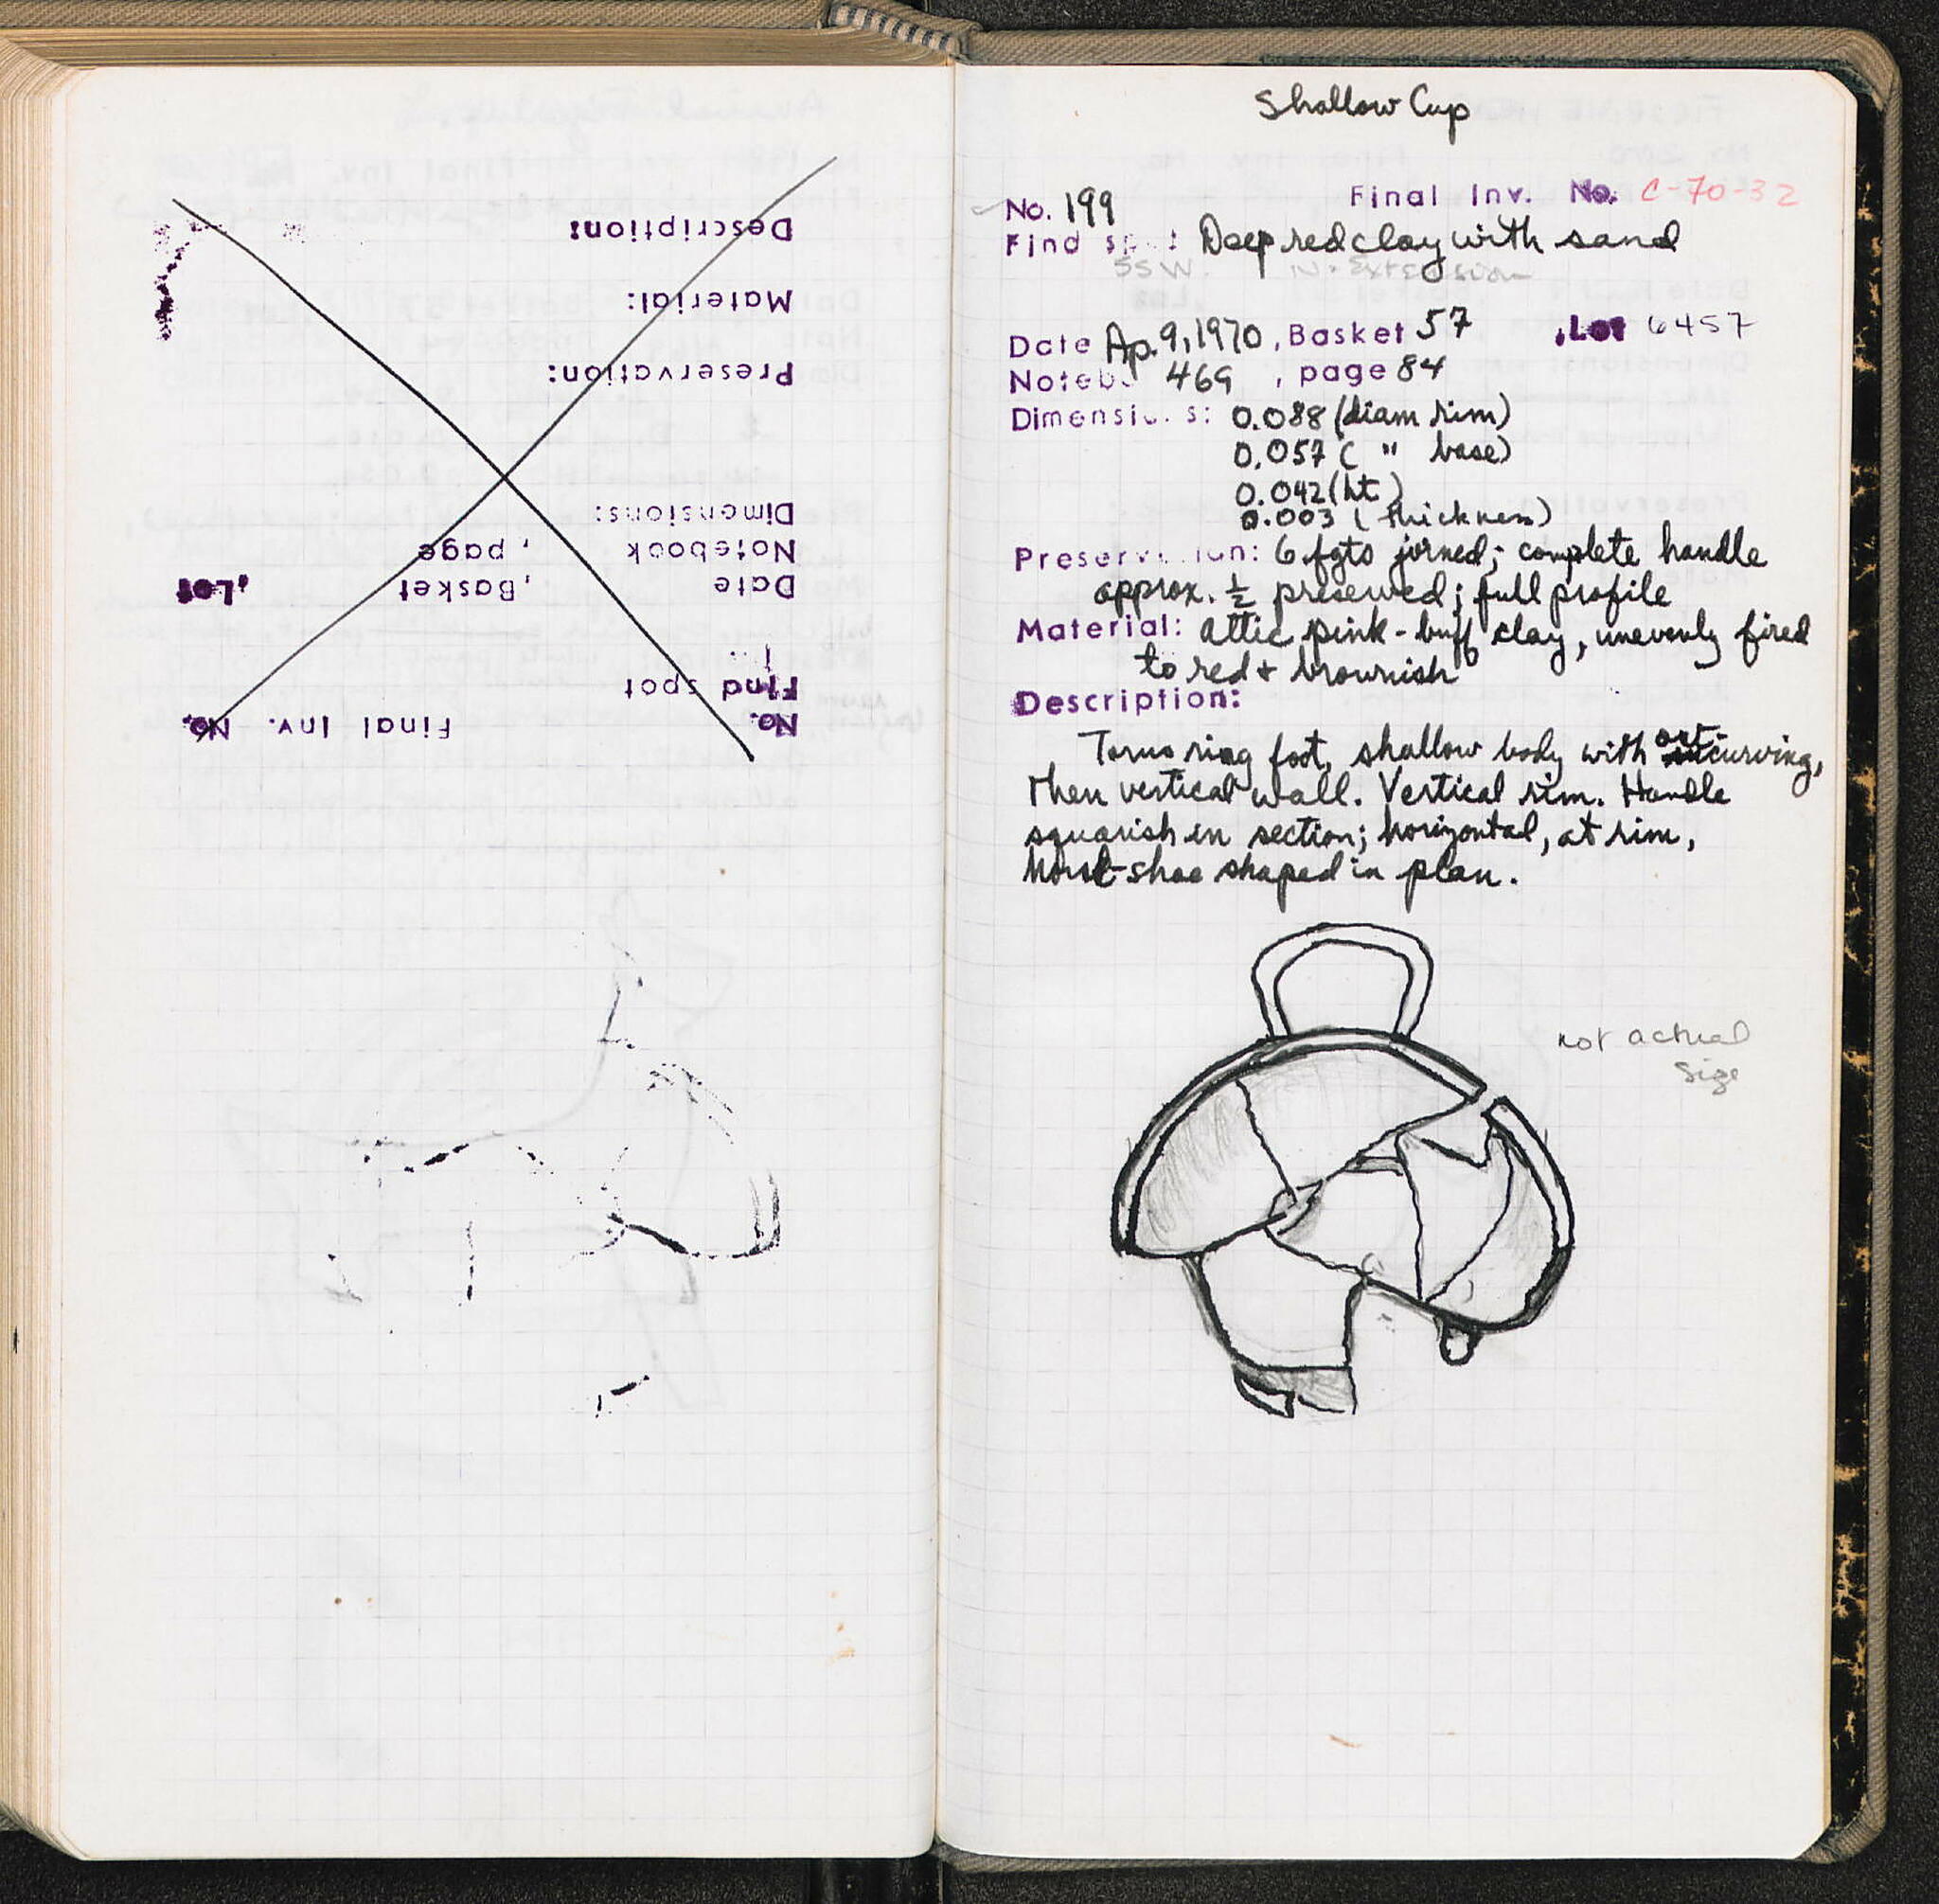 Description:
Material:
Preservation:
Dimensions:
Notebook , page
Date , Basket , Lot
Find spot
No. Final Inv. No.
Shallow Cup
No. 199 Final Inv. No. C-70-32
Find sp t : Deep red clay with sand
SSW. N. Extension
Date Ap. 9, 1970, Basket 57 , Lot 6457
Noteb. 469 , page 84
Dimensi s: 0.088 (diam rim)
0.057 ( " base)
0.042 (ht)
0.003 (thickness)
Preserv ion: 6 fgts joined; complete handle
approx. ½ preserved; full profile
Material: attic pink-buff clay, unevenly fired
to red + brownish
Description:
Torus ring foot, shallow body with out-curving,
then vertical wall. Vertical rim. Handle
squarish in section; horizontal, at rim,
horse-shoe shaped in plan.
not actual
size